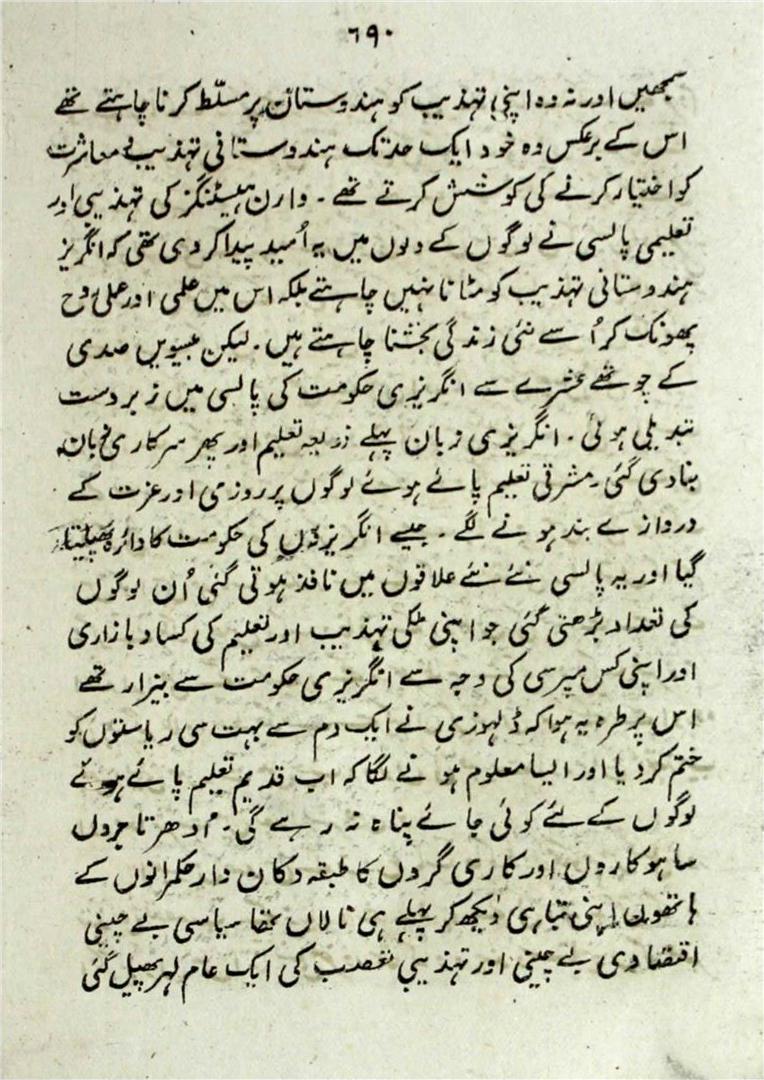 ٦٩٠
سمجھیں اور نہ وہ اپنی تہذیب کو ہندوستان پر مسلّط کرنا چاہتے تھے
اس کے برعکس وہ خود ایک حد تک ہندوستانی تہذیب و معاشرت
کو اختیار کرنے کی کوشش کرتے تھے ۔ وارن ہیسٹنگز کی تہذیبی اور
تعلیمی پالسی نے لوگوں کے دلوں میں یہ اُمید پیدا کر دی تھی کہ انگریز
ہندوستانی تہذیب کو مٹانا نہیں چاہتے بلکہ اس میں علمی اور عملی روح
پھونک کر اُسے نئی زندگی بخشنا چاہتے ہیں ۔ لیکن عیسویں صدی
کے چوتھے عشرے سے انگریزی حکومت کی پالسی میں زبردست
تبدیلی ہوئی ۔ انگریزی زبان پہلے ذریعہ تعلیم اور پھر سرکاری زبان
بنا دی گئی ۔ مشرقی تعلیم پائے ہوئے لوگوں پر روزی اور عزت کے
دروازے بند ہونے لگے ۔ جیسے انگریزوں کی حکومت کا دائرہ پھیلتا
گیا اور یہ پالسی نئے نئے علاقوں میں نافذ ہوتی گئی اُن لوگوں
کی تعداد بڑھتی گئی جو اپنی ملکی تہذیب اور تعلیم کی کساد بازاری
اور اپنی کس مپرسی کی وجہ سے انگریزی حکومت سے بیزار تھے
اس پر طرہ یہ ہوا کہ ڈلہوزی نے ایک دم سے بہت سی ریاستوں کو
ختم کر دیا اور ایسا معلوم ہونے لگا کہ اب قدیم تعلیم پائے ہوئے
لوگوں کے لئے کوئی جائے پناہ نہ رہے گی ۔ اُدھر تاجروں
ساہوکاروں اور کاری گروں کا طبقہ دکان دار حکمرانوں کے
ہاتھوں اپنی تباہی دیکھ کر پہلے ہی نالاں تھا سیاسی بے چینی
اقتصادی بے چینی اور تہذیبی تعصب کی ایک عام لہر پھیل گئی